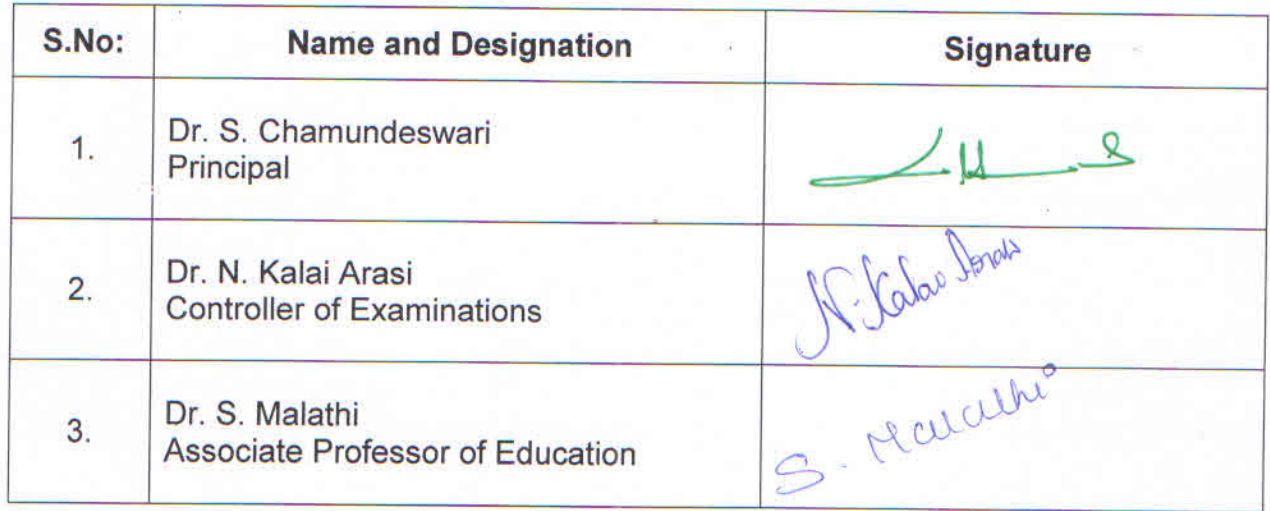 S.No: Name and Designation Signature
1. Dr. S. Chamundeswari
Principal
2. Dr. N. Kalai Arasi
Controller of Examinations
N. Kalai Arasi
3. Dr. S. Malathi
Associate Professor of Education
S. Malathi